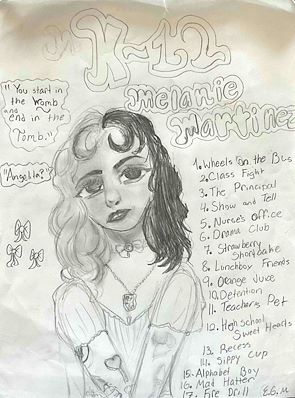 K-12
melanie
martinez
"You start in
the womb
and
end in the
Tomb."
"Angelita?"
1. Wheels on the Bus
2. Class Fight
3. The Principal
4. Show and Tell
5. Nurse's Office
6. Drama Club
7. Strawberry
Shortcake
8. Lunchboy Friends
9. Orange Juice
10. Detention
11. Teacher's Pet
12. High school
Sweet Hearts
13. Recess
14. Sippy Cup
15. Alphabet Boy
16. Mad Hatter
17. Fire Drill
E.G.M